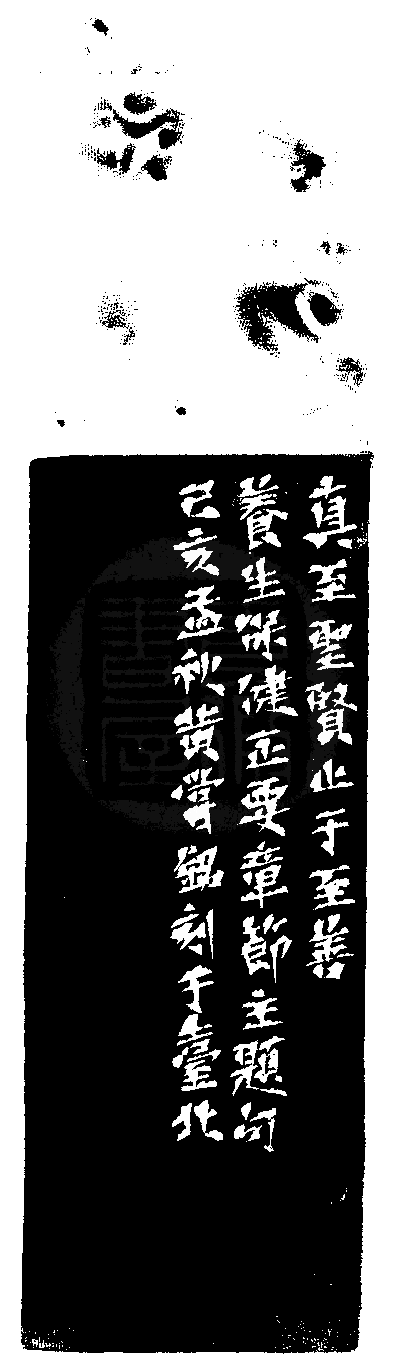 真至聖賢止于至善
養生保健正要章節主題句
己亥孟秋黄嘗銘刻于臺北